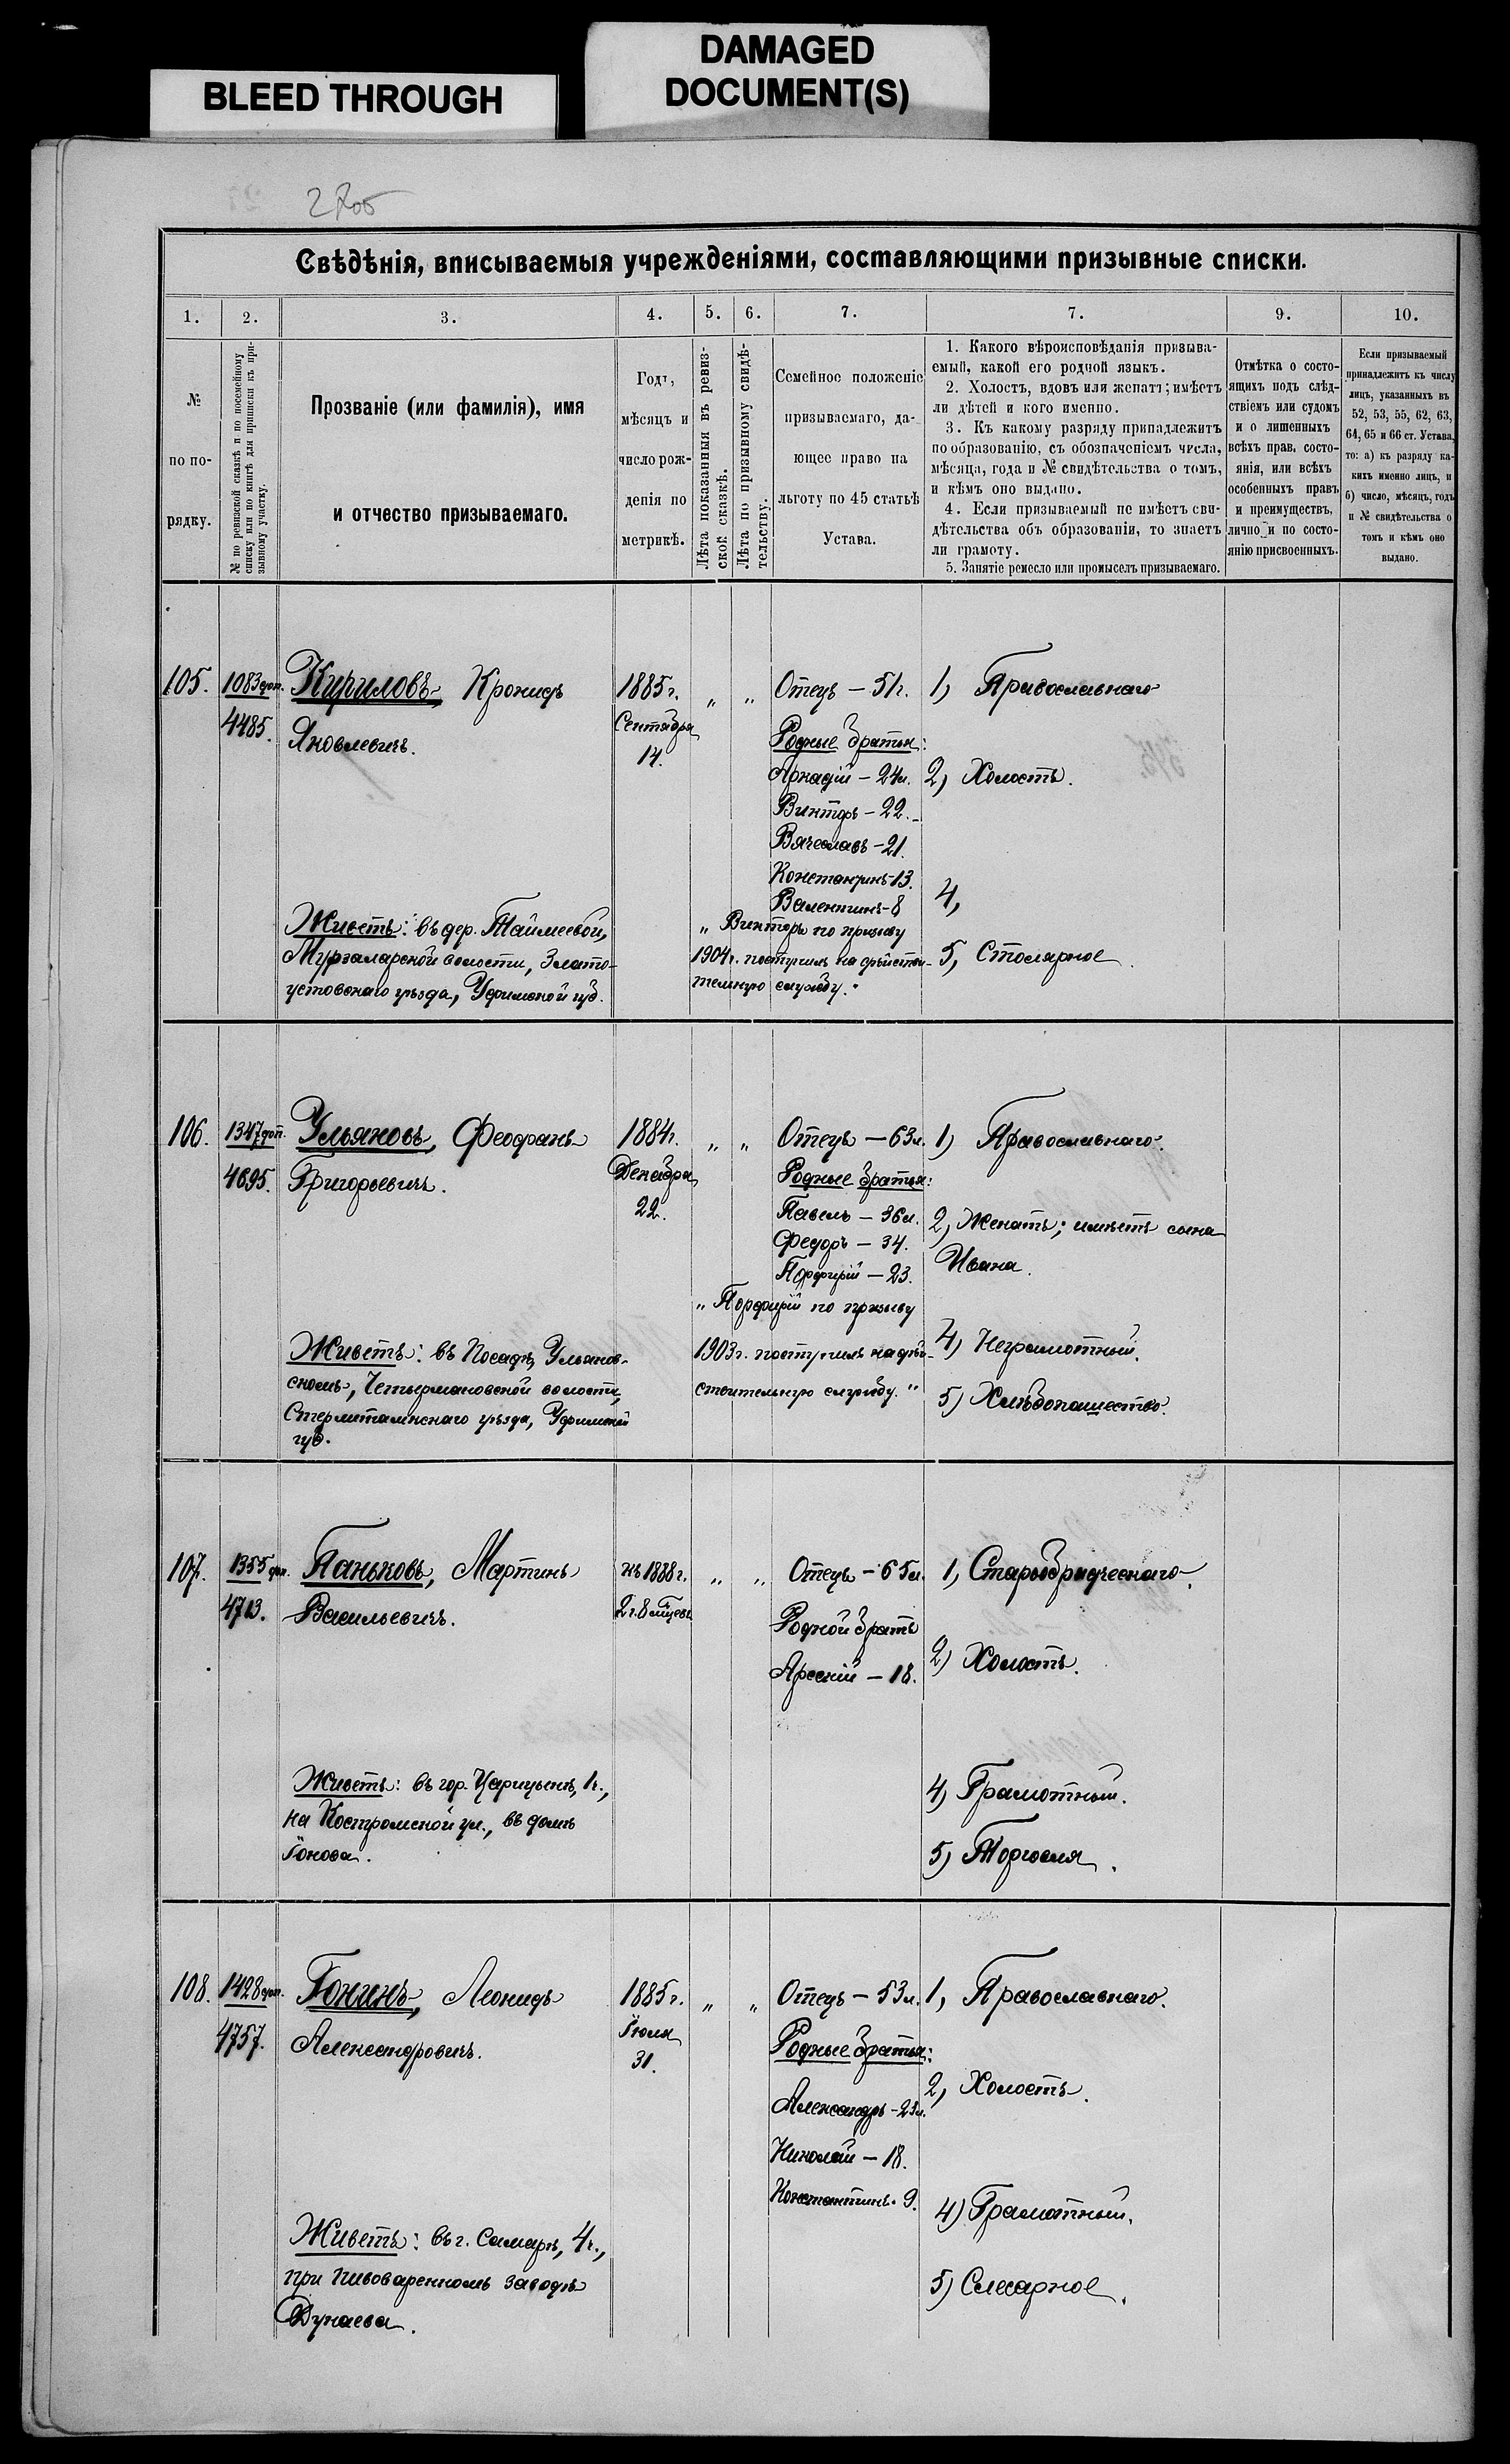 BLEED THROUGH
DAMAGED
DOCUMENT(S)
Свѣдѣнія, вписываемыя учрежденіями, составляющими призывные списки.
1.
2.
3.
4.
5.
6.
7.
7.
9.
10.
№
по по-
рядку.
№ по ревизской сказкѣ и по посемейному
списку или по книгѣ для приписки къ при-
зывному участку.
Прозваніе (или фамилія), имя
и отчество призываемаго.
Годъ,
мѣсяцъ и
число рож-
денія по
метрикѣ.
Лѣта показанныя въ ревиз-
ской сказкѣ.
Лѣта по призывному свидѣ-
тельству.
Семейное положеніе
призываемаго, да-
ющее право на
льготу по 45 статьѣ
Устава.
1. Какого вѣроисповѣданія призыва-
емый, какой его родной языкъ.
2. Холостъ, вдовъ или женатъ; имѣетъ
ли дѣтей и кого именно.
3. Къ какому разряду принадлежитъ
по образованію, съ обозначеніемъ числа,
мѣсяца, года и № свидѣтельства о томъ,
и кѣмъ оно выдано.
4. Если призываемый не имѣетъ сви-
дѣтельства объ образованіи, то знаетъ
ли грамоту.
5. Занятіе ремесло или промыселъ призываемаго.
Отмѣтка о состо-
ящихъ подъ слѣд-
ствіемъ или судомъ
и о лишенныхъ
всѣхъ прав. состо-
янія, или всѣхъ
особенныхъ правъ
и преимуществъ,
лично и по состо-
янію присвоенныхъ.
Если призываемый
принадлежитъ къ числу
лицъ, указанныхъ въ
52, 53, 55, 62, 63,
64, 65 и 66 ст. Устава,
то: а) къ разряду ка-
кихъ именно лицъ, и
б) число, мѣсяцъ, годъ
и № свидѣтельства о
томъ и кѣмъ оно
выдано.
105.
1083 доп.
4485.
Кириловъ, Кронидъ
Яковлевичъ.
Живетъ: въ дер. Таймеевой,
Мурзаларской волости, Злато-
устовскаго уѣзда, Уфимской губ.
1885 г.
Сентября
14.
„ „
Отецъ – 51 г.
Родные братья:
Аркадій – 24 л.
Викторъ – 22.
Вячеславъ – 21.
Константинъ – 13.
Валентинъ – 8
„ Викторъ по призыву
1904 г. поступилъ на дѣйстви-
тельную службу. "
1, Православнаго
2, Холостъ.
4,
5, Столярное.
106.
1347 доп.
4695.
Ульяновъ, Феофанъ
Григорьевичъ.
Живетъ: въ Посадѣ, Ульянов-
скомъ, Четырмановской волости,
Стерлитамакскаго уѣзда, Уфимской
губ.
1884 г.
Декабря
22.
„ „
Отецъ – 63 л.
Родные братья:
Павелъ – 36 л.
Федоръ – 34.
Порфирій – 23.
„ Порфирій по призыву
1903 г. поступилъ на дѣй-
ствительную службу. "
1) Православнаго.
2, Женатъ; имѣетъ сына
Ивана.
4) Неграмотный.
5) Хлѣбопашество.
107.
1355 доп.
4713.
Паньковъ, Мартинъ
Васильевичъ.
Живетъ: въ гор. Царицынѣ, 1 ч.,
на Костромской ул., въ домѣ
Іонова.
къ 1888 г.
2 г. 8 мѣцевъ
„ „
Отецъ – 65 л.
Родной братъ
Арсеній – 18.
1, Старообрядческаго.
2) Холостъ.
4) Грамотный.
5) Торговля.
108.
1428 доп.
4757.
Гонинъ, Леонидъ
Александровичъ.
Живетъ: въ г. Самарѣ, 4 ч.,
при пивоваренномъ заводѣ
Дунаева.
1885 г.
Іюля
31.
„ „
Отецъ – 53 л.
Родные братья:
Александръ – 23 л.
Николай – 18.
Константинъ – 9.
1, Православнаго.
2, Холостъ.
4) Грамотный.
5) Слесарное.